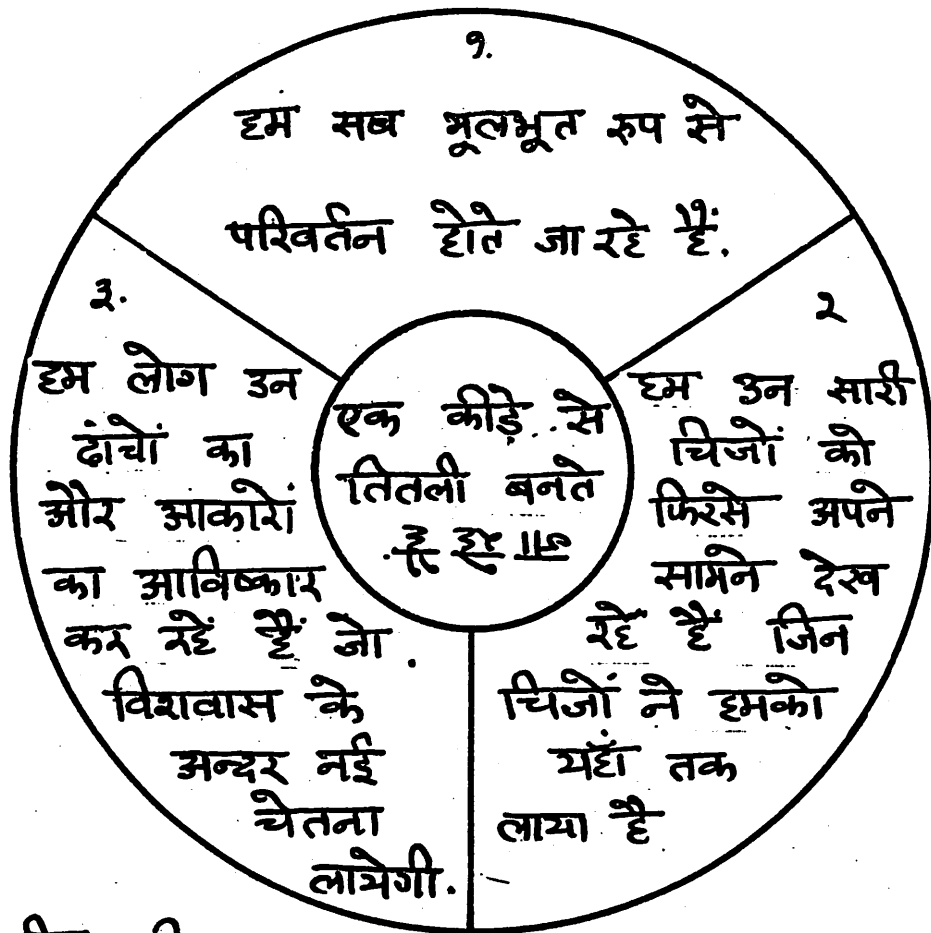 १.
हम सब भूलभूत रुप से
परिवर्तन होते जा रहे हैं.
२
हम उन सारी
चिजों को
फिरसे अपने
सामने देख
रहें हैं जिन
चिजों ने हमको
यहाँ तक
लाया है
३.
हम लोग उन
ढांचों का
और आकारों
का आविष्कार
कर रहें हैं जो
विशवास के
अन्दर नई
चेतना
लायेगी.
एक कीड़े से
तितली बनते